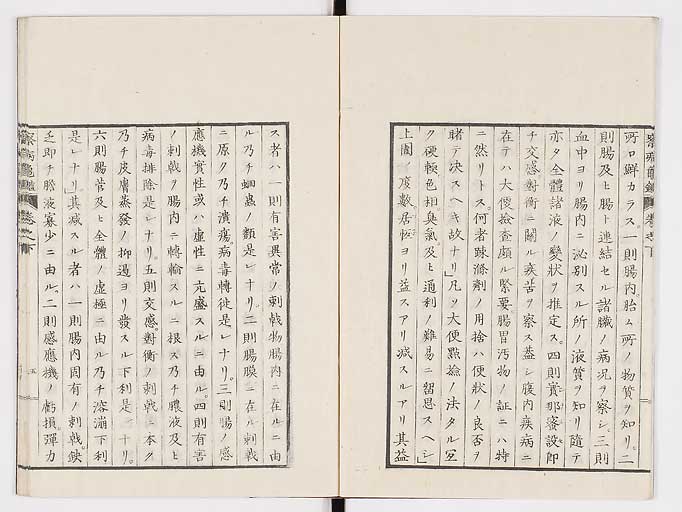 察病亀鑑 卷之下
所ロ鮮カラス。一則腸内胎ム所ノ物質ヲ知リ。二
則腸及ヒ腸ト連結セル諸臓ノ病況ヲ察シ。三則
血中ヨリ腸内ニ泌別スル所ノ液質ヲ知リ隨テ
亦タ全體諸液ノ變状ヲ推定ス。四則實那審設即
チ交感對衡ニ關ル疾苦ヲ察ス蓋シ腹内疾病ニ
在テハ大便檢查頗ル緊要腸胃汚物ノ証ニハ特
ニ然リトス。何者疎滌劑ノ用捨ハ便状ノ良否ヲ
睹テ决スヘキ故ナリ」凡ソ大便點撿ノ法タル宜
ク硬輭色相臭氣及ヒ通利ノ難易ニ留思スヘシ」
上圊ノ度數居恒ヨリ益スアリ減スルアリ其益
ス者ハ一則有害異常ノ刺戟物腸内ニ在ルニ由
ル乃チ蛔蟲ノ類是レナリ。二則腸膜ニ在ル刺戟
ニ原ク乃チ潰瘍。病毒轉徙是レナリ。三則腸ノ感
應機實性或ハ虚性ニ亢盛スルニ由ル。四則有害
ノ刺戟ヲ腸内ニ轉輸スルニ根ス乃チ膿液及ヒ
病毒排除是レナリ。五則交感對衡ノ刺戟ニ本ク
乃チ皮膚蒸發ノ抑遏ヨリ發スル下利是レナリ。
六則腸管及ヒ全體ノ虚極ニ由ル乃チ溶崩下利
是レナリ」其减スル者ハ一則腸内固有ノ刺戟缺
乏即チ膽液寡少ニ由ル。二則感應機ノ虧損。彈力
察病亀鑑 卷之下
五